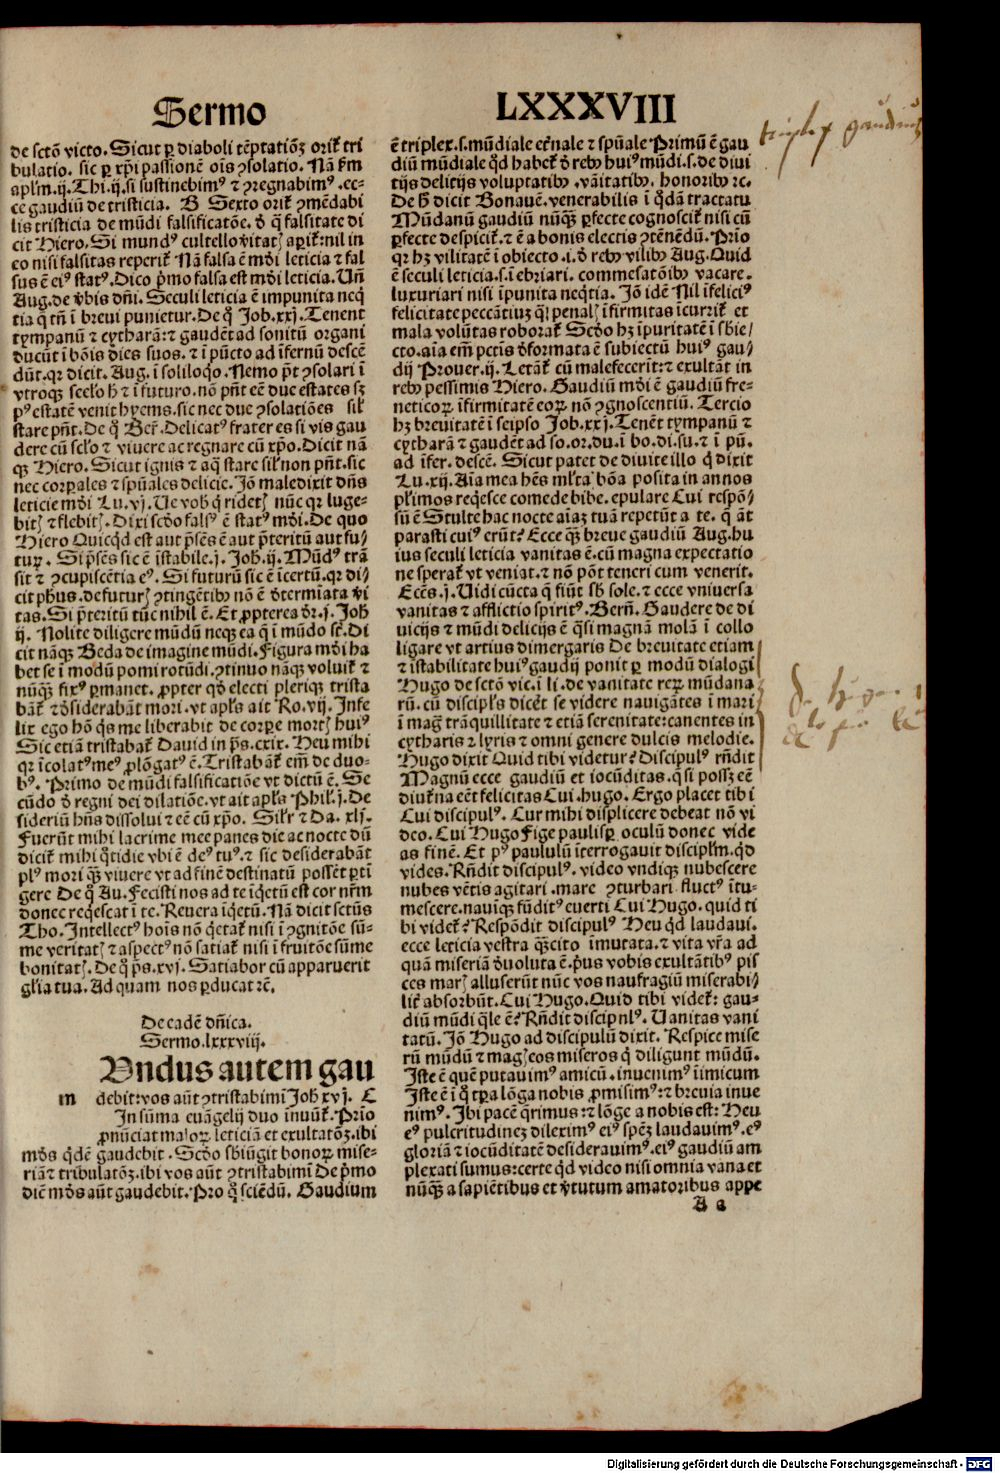 Sermo LXXXVIII
de sctō victo. Sicut ꝑ diaboli tēptatiōꝫ orit᷑ tri
bulatio. sic ꝑ xp̄i passionē oīs ꝯsolatio. Nā ẜm
apl̄m .ij. Thi. ij. si sustinebimꝰ ⁊ ꝯregnabimꝰ. ec⸗
ce gaudiū de tristicia. B Sexto orit᷑ ꝯmēdabi
lis tristicia de mūdi falsificatōe. ð q̄ falsitate di
cit Hiero. Si mundꝰ cultello v̓itatꝭ aꝑit᷑: nil in
eo nisi falsitas reperit᷑ Nā falsa ē mūdi leticia ⁊ fal
sus ē eiꝰ statꝰ. Dico p̓mo falsa est mūdi leticia. Uñ
Aug. de v̓bis dn̄i. Seculi leticia ē impunita neq̄
tia q̄ tn̄ ī brevi punietur. De q̄ Job. xxj. Tenent
tympanū ⁊ cytharā: ⁊ gaudēt ad sonitū organi
ducūt ī bōis dies suos. ⁊ ī pūcto ad īfernū descē
dūt. qꝛ dicit. Aug. ī soliloqo. Nemo p̄t ꝯsolari ī
vtroqꝫ sēclo h̄ ⁊ ī futuro. nō pn̄t eē due estates sꝫ
pꝰ estatē venit hyems. sic nec due ꝯsolatiōes sil̓
stare pn̄t. De q̄ Ber̄. Delicatꝰ frater es si vis gau
dere cū sclo ⁊ vivere ac regnare cū xp̄o. Dicit nā
qꝫ Hiero. Sicut ignis ⁊ aq̄ stare sil̓ non pn̄t. sic
nec corꝑales ⁊ spūales delicie. Jō maledixit dn̄s
leticie mūdi Lu. vj. Ue vob̄ q̄ ridetꝭ nūc qꝛ luge⸗
bitꝭ ⁊ flebitꝭ. Dixi scd̓o falsꝰ ē statꝰ mūdi. De quo
Hiero Quicq̓d est aut p̄sēs ē aut p̄teritū aut fu⸗
turꝝ. Si p̄sēs sic ē īstabile. j. Joh. ij. Mūdꝰ trā
sit ⁊ ꝯcupiscētia eꝰ. Si futurū sic ē īcertū. qꝛ di⸗
cit ph̄us. de futurꝭ ꝯtingētibꝰ nō ē ðtermiata v̓i
tas. Si p̄teritū tūc nihil ē. Et ꝓpterea dr̄. j. Joh
ij. Nolite diligere mūdū neqꝫ ea q̄ ī mūdo st̄. Di
cit nāqꝫ Beda de imagine mūdi. Figura mūdi ha
bet se ī modū pomi rotūdi. ꝯtinuo nāqꝫ voluit᷑ ⁊
nūqꝫ fixꝰ ꝑmanet. ꝓpter qd̓ electi pleriqꝫ trista
bāt᷑ ⁊ ðsiderabāt mori. vt apl̄s ait Ro. vij. Infe
lix ego hō q̄s me liberabit de corꝑe mortꝭ huiꝰ
Sic etiā tristabat᷑ David in ps̄. cxix. Heu mihi
qꝛ īcolatꝰ meꝰ ꝓlōgatꝰ ē. Tristabāt᷑ em̄ de duo⸗
bꝰ. Primo de mūdi falsificatiōe vt dictū ē. Se
cūdo ð regni dei dilatiōe. vt ait apl̄s Phil̓. j. De
siderium hn̄s dissolui ⁊ eē cū xp̄o. Sil̓r ⁊ Da. xlj.
Fuerūt mihi lacrime mee panes die ac nocte dū
dicit᷑ mihi q̄tidie vbi ē deꝰ tuꝰ. ⁊ sic desiderabāt
plꝰ mori qꝫ vivere vt ad finē destinatū possēt ꝑtī
gere De q̄ Au. Fecisti nos ad te īq̓etū est cor nr̄m
donec req̓escat ī te. Revera īq̓etū. Nā dicit sctūs
Tho. Intellectꝰ hois nō q̓etat᷑ nisi ī ꝯgnitōe sū⸗
me veritatꝭ ⁊ aspectꝰ nō satiat᷑ nisi ī fruitōe sūme
bonitatꝭ. De q̄ ps̄. xvj. Satiabor cū apparuerit
gl̓ia tua. Ad quam nos ꝑducat ⁊c̄.
De eadē dn̄ica.
Sermo. lxxxviij.
Undus autem gau
m debit: vos aūt ꝯtristabimī Joh xvj. C
In sūma euāgelij duo īnuūt᷑. Prīo
ꝓnūciat maloꝝ leticiā et exultatōꝫ. ibi
mūd̓s qdē gaudebit. Scd̓o sbīugit bonoꝝ mise⸗
riā ⁊ tribulatōꝫ. ibi vos aūt ꝯtristabimī De p̓mo
diē mūd̓s aūt gaudebit. Pro q̄ sciēdū. Gaudium
ē triplex. s. mūdiale et̓nale ⁊ spūale Primū ē gau
diū mūdiale qd̓ habet᷑ ð rebꝰ huiꝰ mūdi. s. de divi
tijs delitijs voluptatibꝰ. vāitatibꝰ. honoribꝰ ⁊c.
De h̄ dicit Bonauē. venerabilis ī q̄dā tractatu
Mūdanū gaudiū nūqꝫ ꝑfecte cognoscit᷑ nisi cū
ꝑfecte despicit᷑. ⁊ ē a bonis electis ꝯtēnēdū. Prīo
qꝛ hꝫ vilitatē ī obiecto. i. ð rebꝰ vilibꝰ Aug. Quid
ē seculi leticia. s. ī ebriari. commesatōibꝰ vacare.
luxuriari nisi īpunita neq̄tia. Jō idē Nil īfeliciꝰ
felicitate peccātiuꝫ q̄ penalꝭ īfirmitas īcurrit᷑ et
mala volūtas roborat᷑ Scd̓o hꝫ īpuritatē ī sbie⸗
cto. aīa em̄ pctīs ðformata ē subiectū huiꝰ gau⸗
dij Prouer. ij. Letāt᷑ cū malefecerīt: ⁊ exultāt in
rebꝰ pessimis Hiero. Gaudiū mūdi ē gaudiū fre⸗
neticoꝝ īfirmitatē eoꝝ nō ꝯgnoscentiū. Tercio
hꝫ brevitatē ī seipso Job. xxj. Tenēt tympanū ⁊
cytharā ⁊ gaudēt ad so. or. du. ī bo. di. su. ⁊ ī pū.
ad īfer. descē. Sicut patet de divite illo q̄ dixit
Lu. xij. Aīa mea hēs ml̓ta bōa posita in annos
pl̓imos req̓esce comede bibe. epulare Cui respō⸗
sū ē Stulte hac nocte aīaꝫ tuā repetūt a te. q̄ āt
parasti cuiꝰ erūt? Ecce qꝫ breve gaudiū Aug. hu
ius seculi leticia vanitas ē. cū magna expectatio
ne sperat᷑ vt veniat. ⁊ nō pōt teneri cum venerit.
Eccs̄. j. Uidi cūcta q̄ fiūt sb̄ sole. ⁊ ecce vniversa
vanitas ⁊ afflictio spiritꝰ. Berñ. Gaudere de di
vicijs ⁊ mūdi delicijs ē q̄si magnā molā ī collo
ligare vt artius dimergaris De brevitate etiam
⁊ īstabilitate huiꝰ gaudij ponit ꝑ modū dialogi
Hugo de sctō vic. ī li. de vanitate reꝝ mūdana
rū. cū discipl̓s dicēt se videre navigātes ī mari
ī magͣ trāquillitate ⁊ etiā serenitate: canentes in
cytharis ⁊ lyris ⁊ omni genere dulcis melodie.
Hugo dixit Quid tibi videtur? Discipulꝰ rn̄dit
Magnū ecce gaudiū et iocūditas. q̄ si possꝫ eē
diut̓na eēt felicitas Cui. hugo. Ergo placet tibi
Cui discipulꝰ. Cur mihi displicere debeat nō vi
deo. Cui Hugo Fige paulisꝑ oculū donec vide
as finē. Et pꝰ paululū īterrogavit discipl̄m. qd̓
vides. Rn̄dit discipulꝰ. video vndiqꝫ nubescere
nubes vētis agitari. mare ꝯturbari fluctꝰ ītu⸗
mescere. nauīqꝫ fūditꝰ everti Cui Hugo. quid ti
bi videt᷑? Respōdit discipulꝰ Heu qd̓ laudavi.
ecce leticia vestra qꝫcito īmutata. ⁊ vita vr̄a ad
quā miseriā ðvoluta ē. p̓us vobis exultātibꝰ pis
ces marꝭ alluserūt nūc vos naufragiū miserabi⸗
lit̓ absorbūt. Cui Hugo. Quid tibi videt᷑: gau⸗
diū mūdi q̄le ē? Rn̄dit discipulꝰ. Uanitas vani
tatū. Jō Hugo ad discipulū dixit. Respice mise
rū mūdū ⁊ magꝭ eos miseros q̄ diligunt mūdū.
Iste ē quē putavimꝰ amicū. invenimꝰ īimicum
Iste ē ī q̄ tꝑa lōga nobis ꝓmisimꝰ: ⁊ brevia inve
nimꝰ. Ibi pacē q̄rimus: ⁊ lōge a nobis est: Heu
eꝰ pulcritudinez dileximꝰ eiꝰ spēꝫ laudavimꝰ. eꝰ
gloriā ⁊ iocūditatē desideravimꝰ. eiꝰ gaudiū am
plexati sumus: certe qd̓ video nisi omnia vana et
nūqꝫ a sapiētibus et v̓tutum amatoribus appe
A a
triplex gaudium
Digitalisierung gefördert durch die Deutsche Forschungsgemeinschaft - DFG